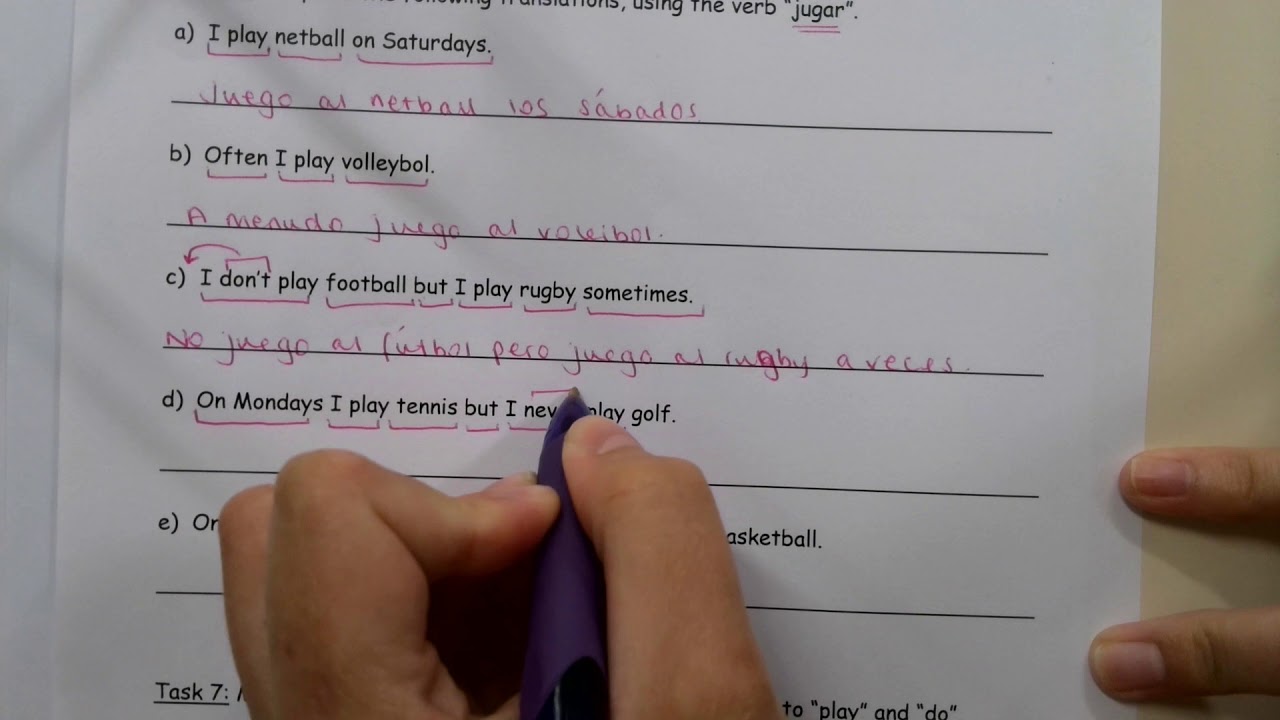 following translations, using the verb "jugar".
a) I play netball on Saturdays.
Juego al netball los sábados
b) Often I play volleybol.
A menudo juego al voleibol.
c) I don't play football but I play rugby sometimes.
No juego al fútbol pero juego al rugby a veces.
d) On Mondays I play tennis but I play golf.
e) asketball.
Task 7: to "play" and "do"